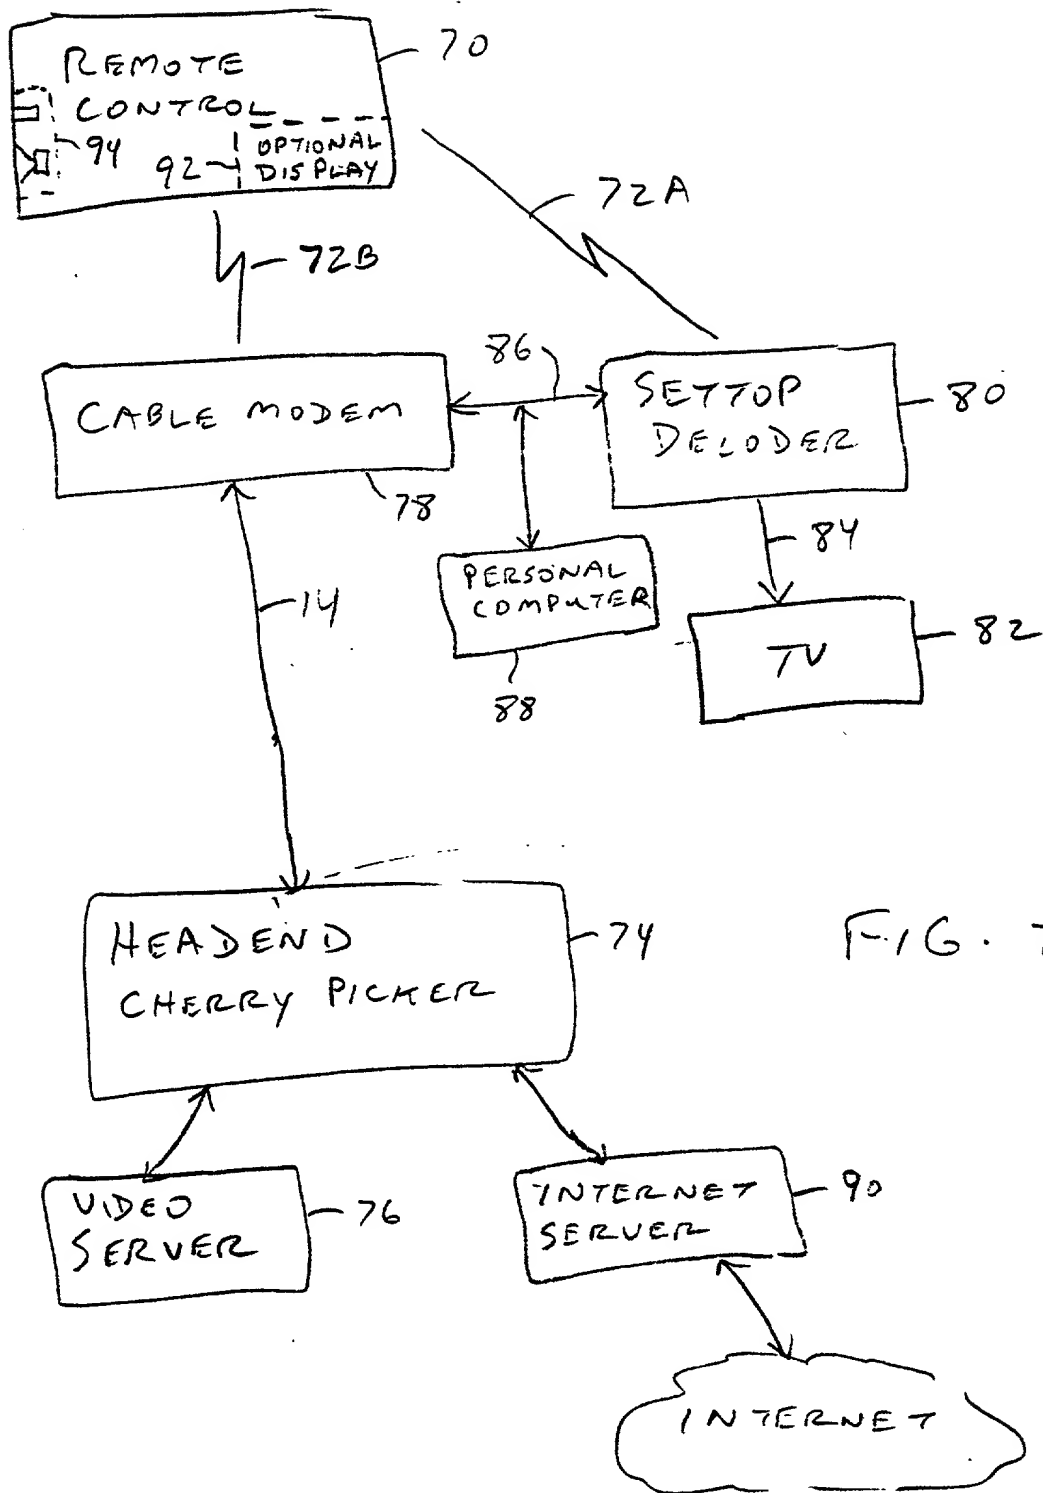 REMOTE
CONTROL
70
94
92
OPTIONAL
DISPLAY
72A
72B
86
CABLE MODEM
SETTOP
DECODER
80
78
84
14
PERSONAL
COMPUTER
88
TV
82
HEADEND
CHERRY PICKER
74
FIG.
VIDEO
SERVER
76
INTERNET
SERVER
90
INTERNET